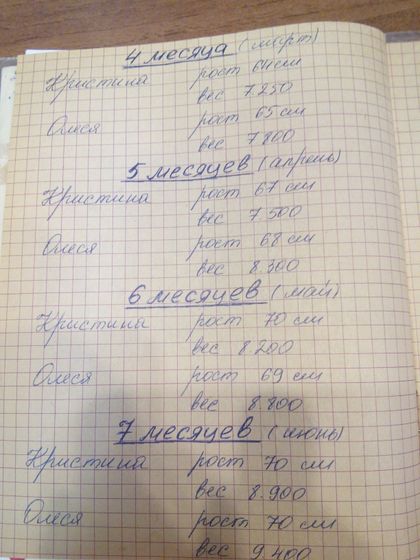 4 месяца (март)
Кристина рост 64 см
вес 7.250
Олеся рост 65 см
вес 7800
5 месяцев (апрель)
Кристина рост 67 см
вес 7 500
Олеся рост 68 см
вес 8.300
6 месяцев (май)
Кристина рост 70 см
вес 8.200
Олеся рост 69 см
вес 8.800
7 месяцев (июнь)
Кристина рост 70 см
вес 8.900
Олеся рост 70 см
вес 9.400